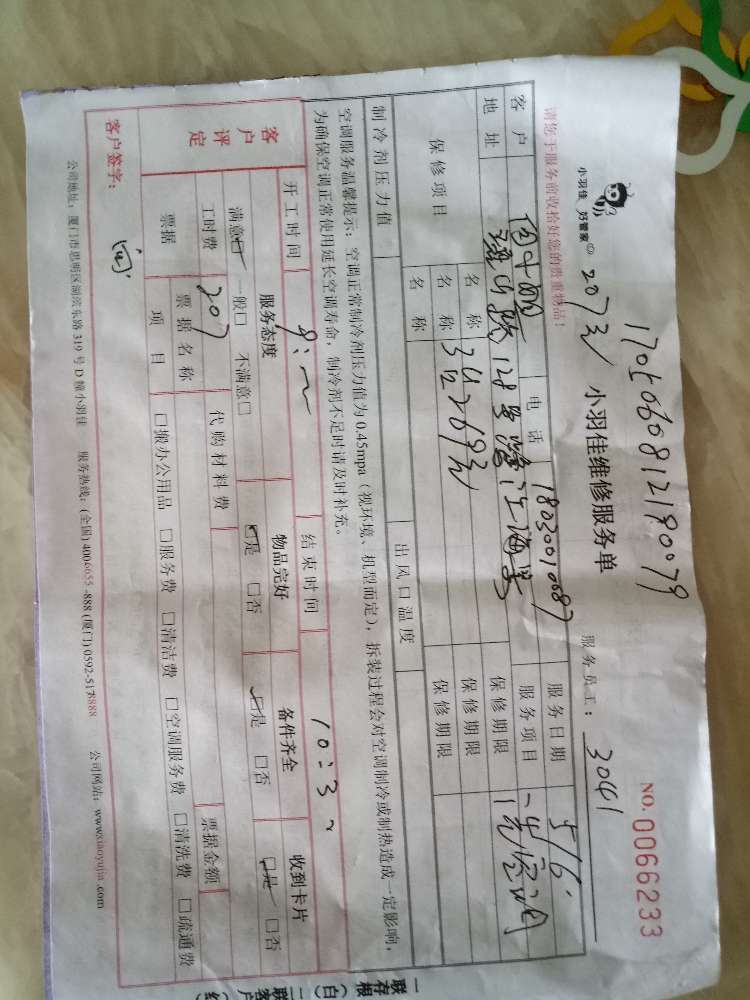 1705060812190079
小羽佳 好管家
207元
小羽佳维修服务单
NO. 0066233
请您于服务前收拾好您的贵重物品！
服务员工： 3041
客户 电话 18030010087 服务日期 5/6
地址 128号 服务项目 洗空调
保修项目 名称 保修期限
名称 保修期限
名称 保修期限
制冷剂压力值 出风口温度
空调服务温馨提示：空调正常制冷剂压力值为 0.45mpa（视环境、机型而定），拆装过程会对空调制冷或制热造成一定影响，
为确保空调正常使用延长空调寿命，制冷剂不足时请及时补充。
客户评定 开工时间 结束时间 10:3
服务态度 物品完好 备件齐全 收到卡片
满意□ 一般□ 不满意□ □是 □否 □是 □否 □是 □否
工时费 207 代购材料费 票据金额
票据 票据名称
项目 □搬办公用品 □服务费 □清洁费 □空调服务费 □清洗费 □疏通费
客户签字：
公司地址：厦门市思明区湖滨东路 319 号 D 幢小羽佳 服务热线：(全国) 4006055-888 (厦门) 0592-5178888 公司网站：www.xiaoyujia.com